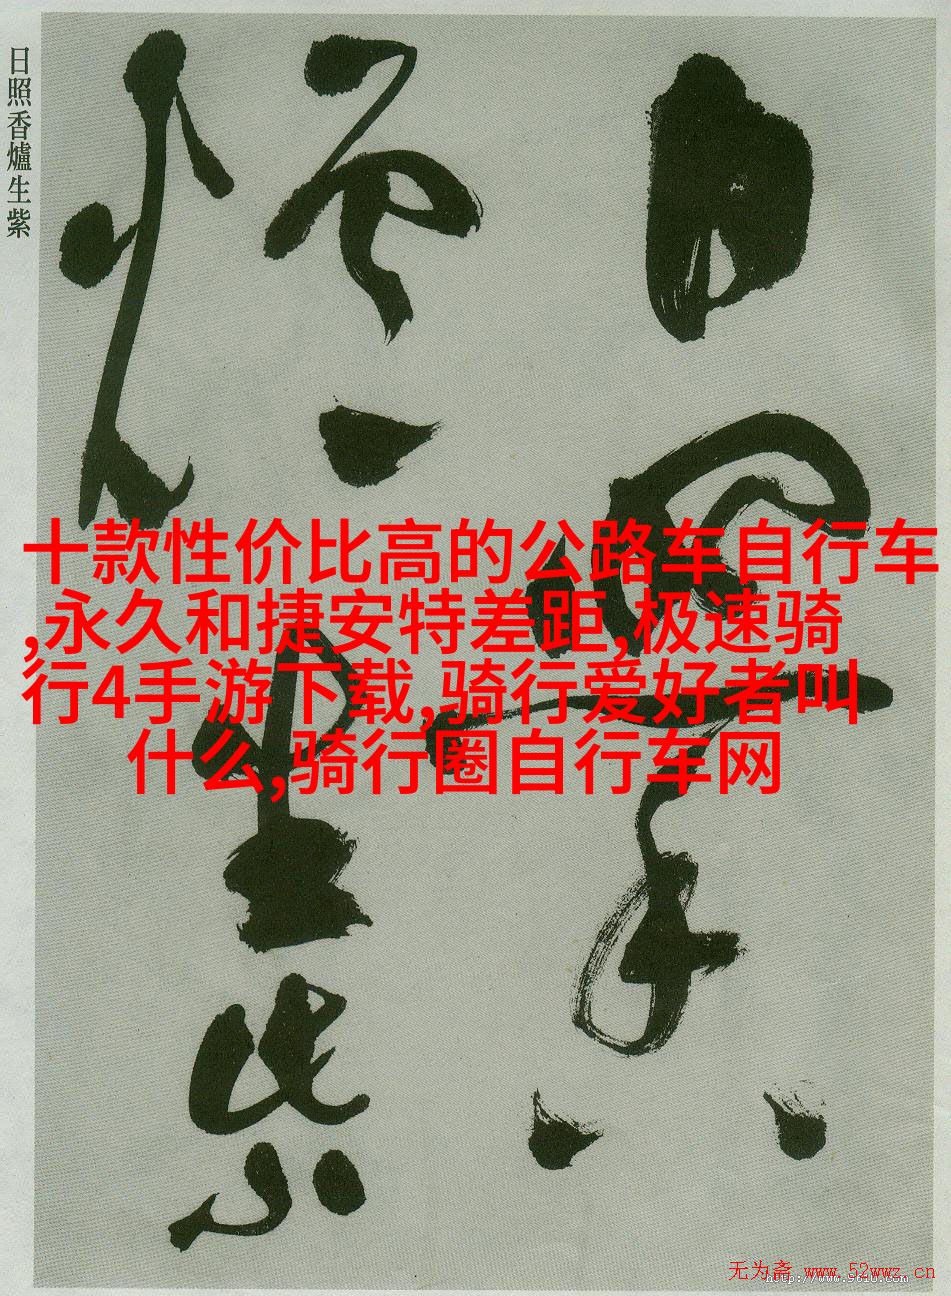 日照香爐生紫
日照香
爐生紫
十款性价比高的公路车自行车
,永久和捷安特差距,极速骑
行4手游下载,骑行爱好者叫
什么,骑行圈自行车网
无为斋 www.52wwz.cn
http://www.9610.com